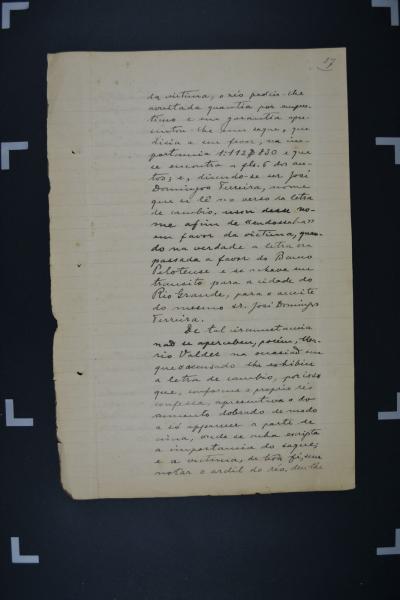 17
da victima, o réo pediu-lhe
avultada quantia por empres-
timo e em garantia apre-
sentou-lhe um saque, que
dizia a seu favor, na im-
portancia 1:112$830 e que
se encontra a fls. 6 dos au-
tos; e, dizendo-se ser José
Domingos Ferreira, nome
que se lê no verso da letra
de cambio, usou desse no-
me afim de "endossal-a"
em favor da victima, quan-
do na verdade a letra era
passada a favor do Banco
Pelotense e se achava em
transito para a cidade do
Rio Grande, para o acceite
do mesmo sr. José Domingos
Ferreira.
De tal circumstancia
não se apercebeu, porém,
rio Valdez na occasião em
que o accusado lhe exhibiu
a letra de cambio, por isso
que, conforme o proprio réo
confessa, apresentava o do-
cumento dobrado de modo
a só apparecer a parte de
cima, onde se acha escripta
a importancia do saque;
e a victima, de bôa fé, sem
notar o ardil do réo, deu-lhe